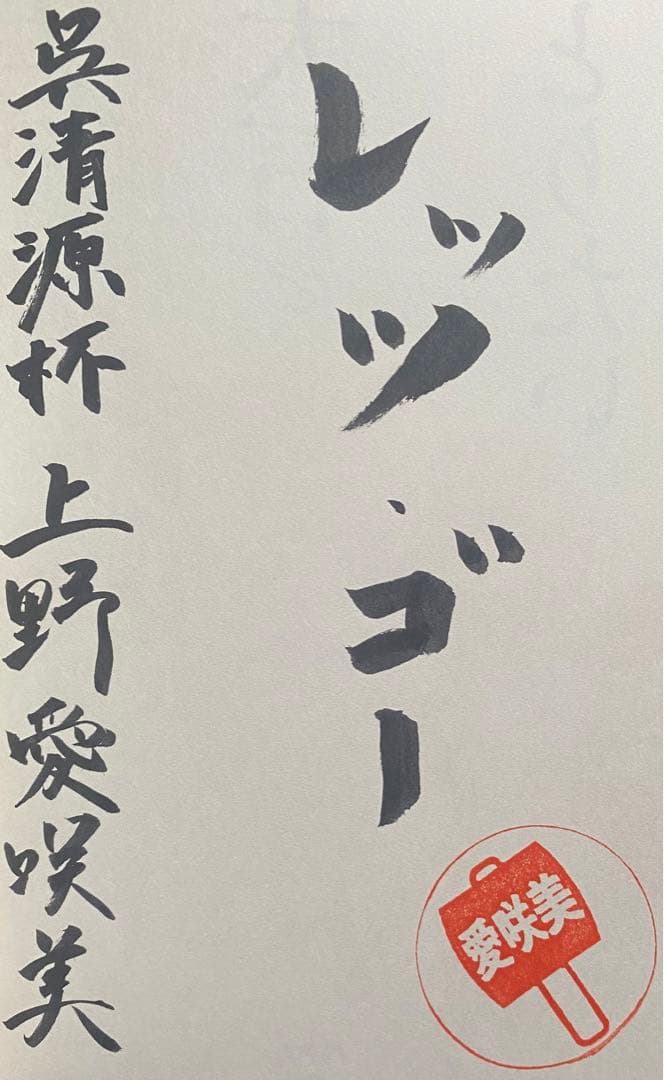 レッツ・ゴー
呉清源杯 上野愛咲美
愛咲美